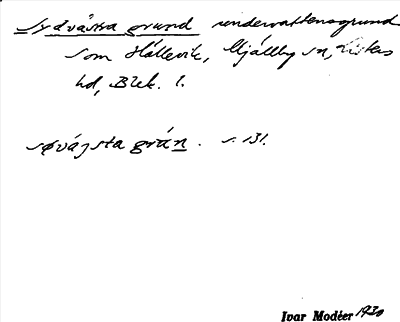 Sydvästra grund undervattensgrund
som Hällevik, Mjällby sn, Listers
hd, Blek. l.
søvájsta grán. s. 131.
Ivar Modéer 1930